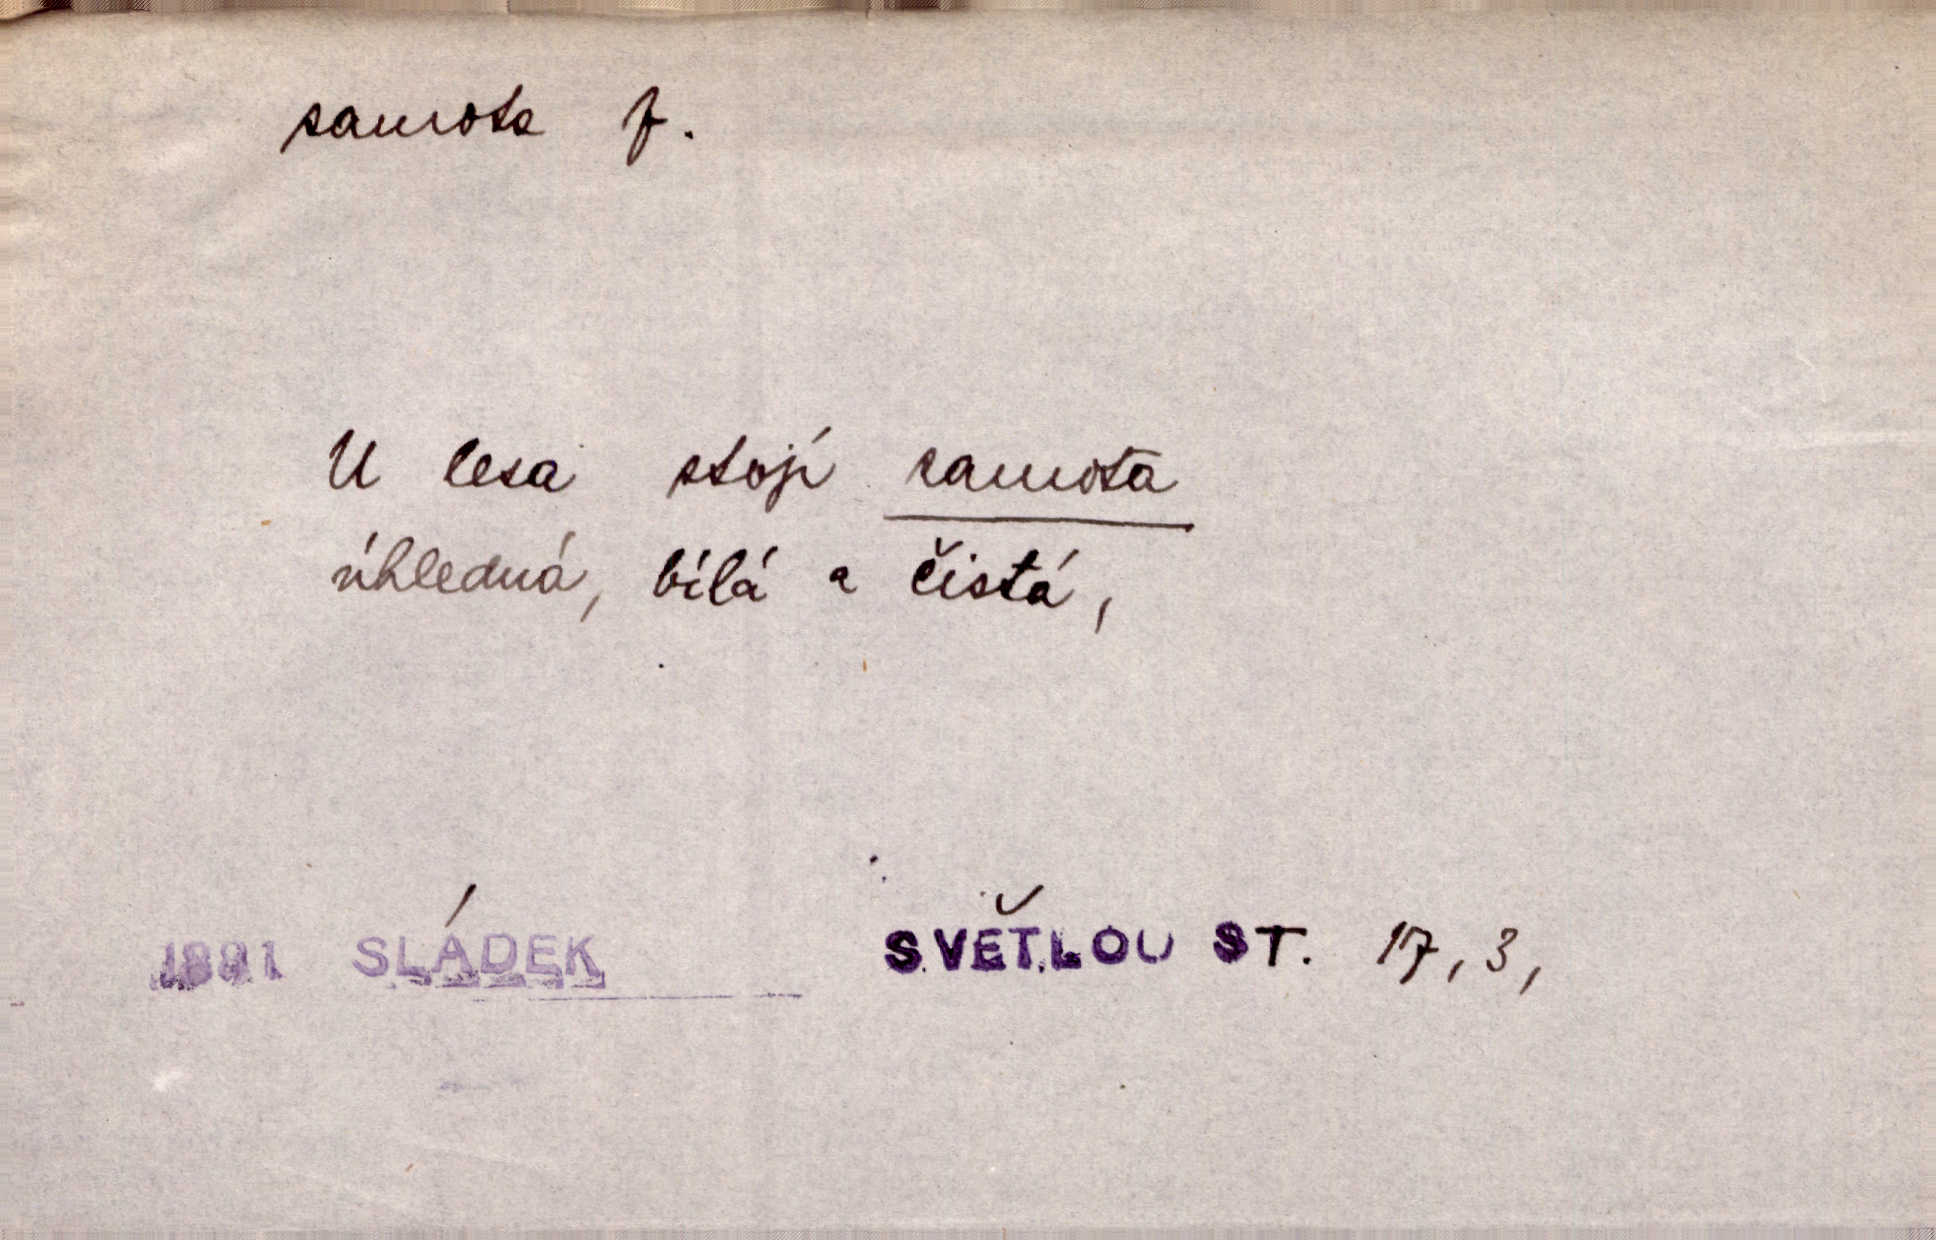 samota f.
U lesa stojí samota
úhledná, bílá a čistá,
1881 SLÁDEK SVĚTLOU ST. 17, 3,